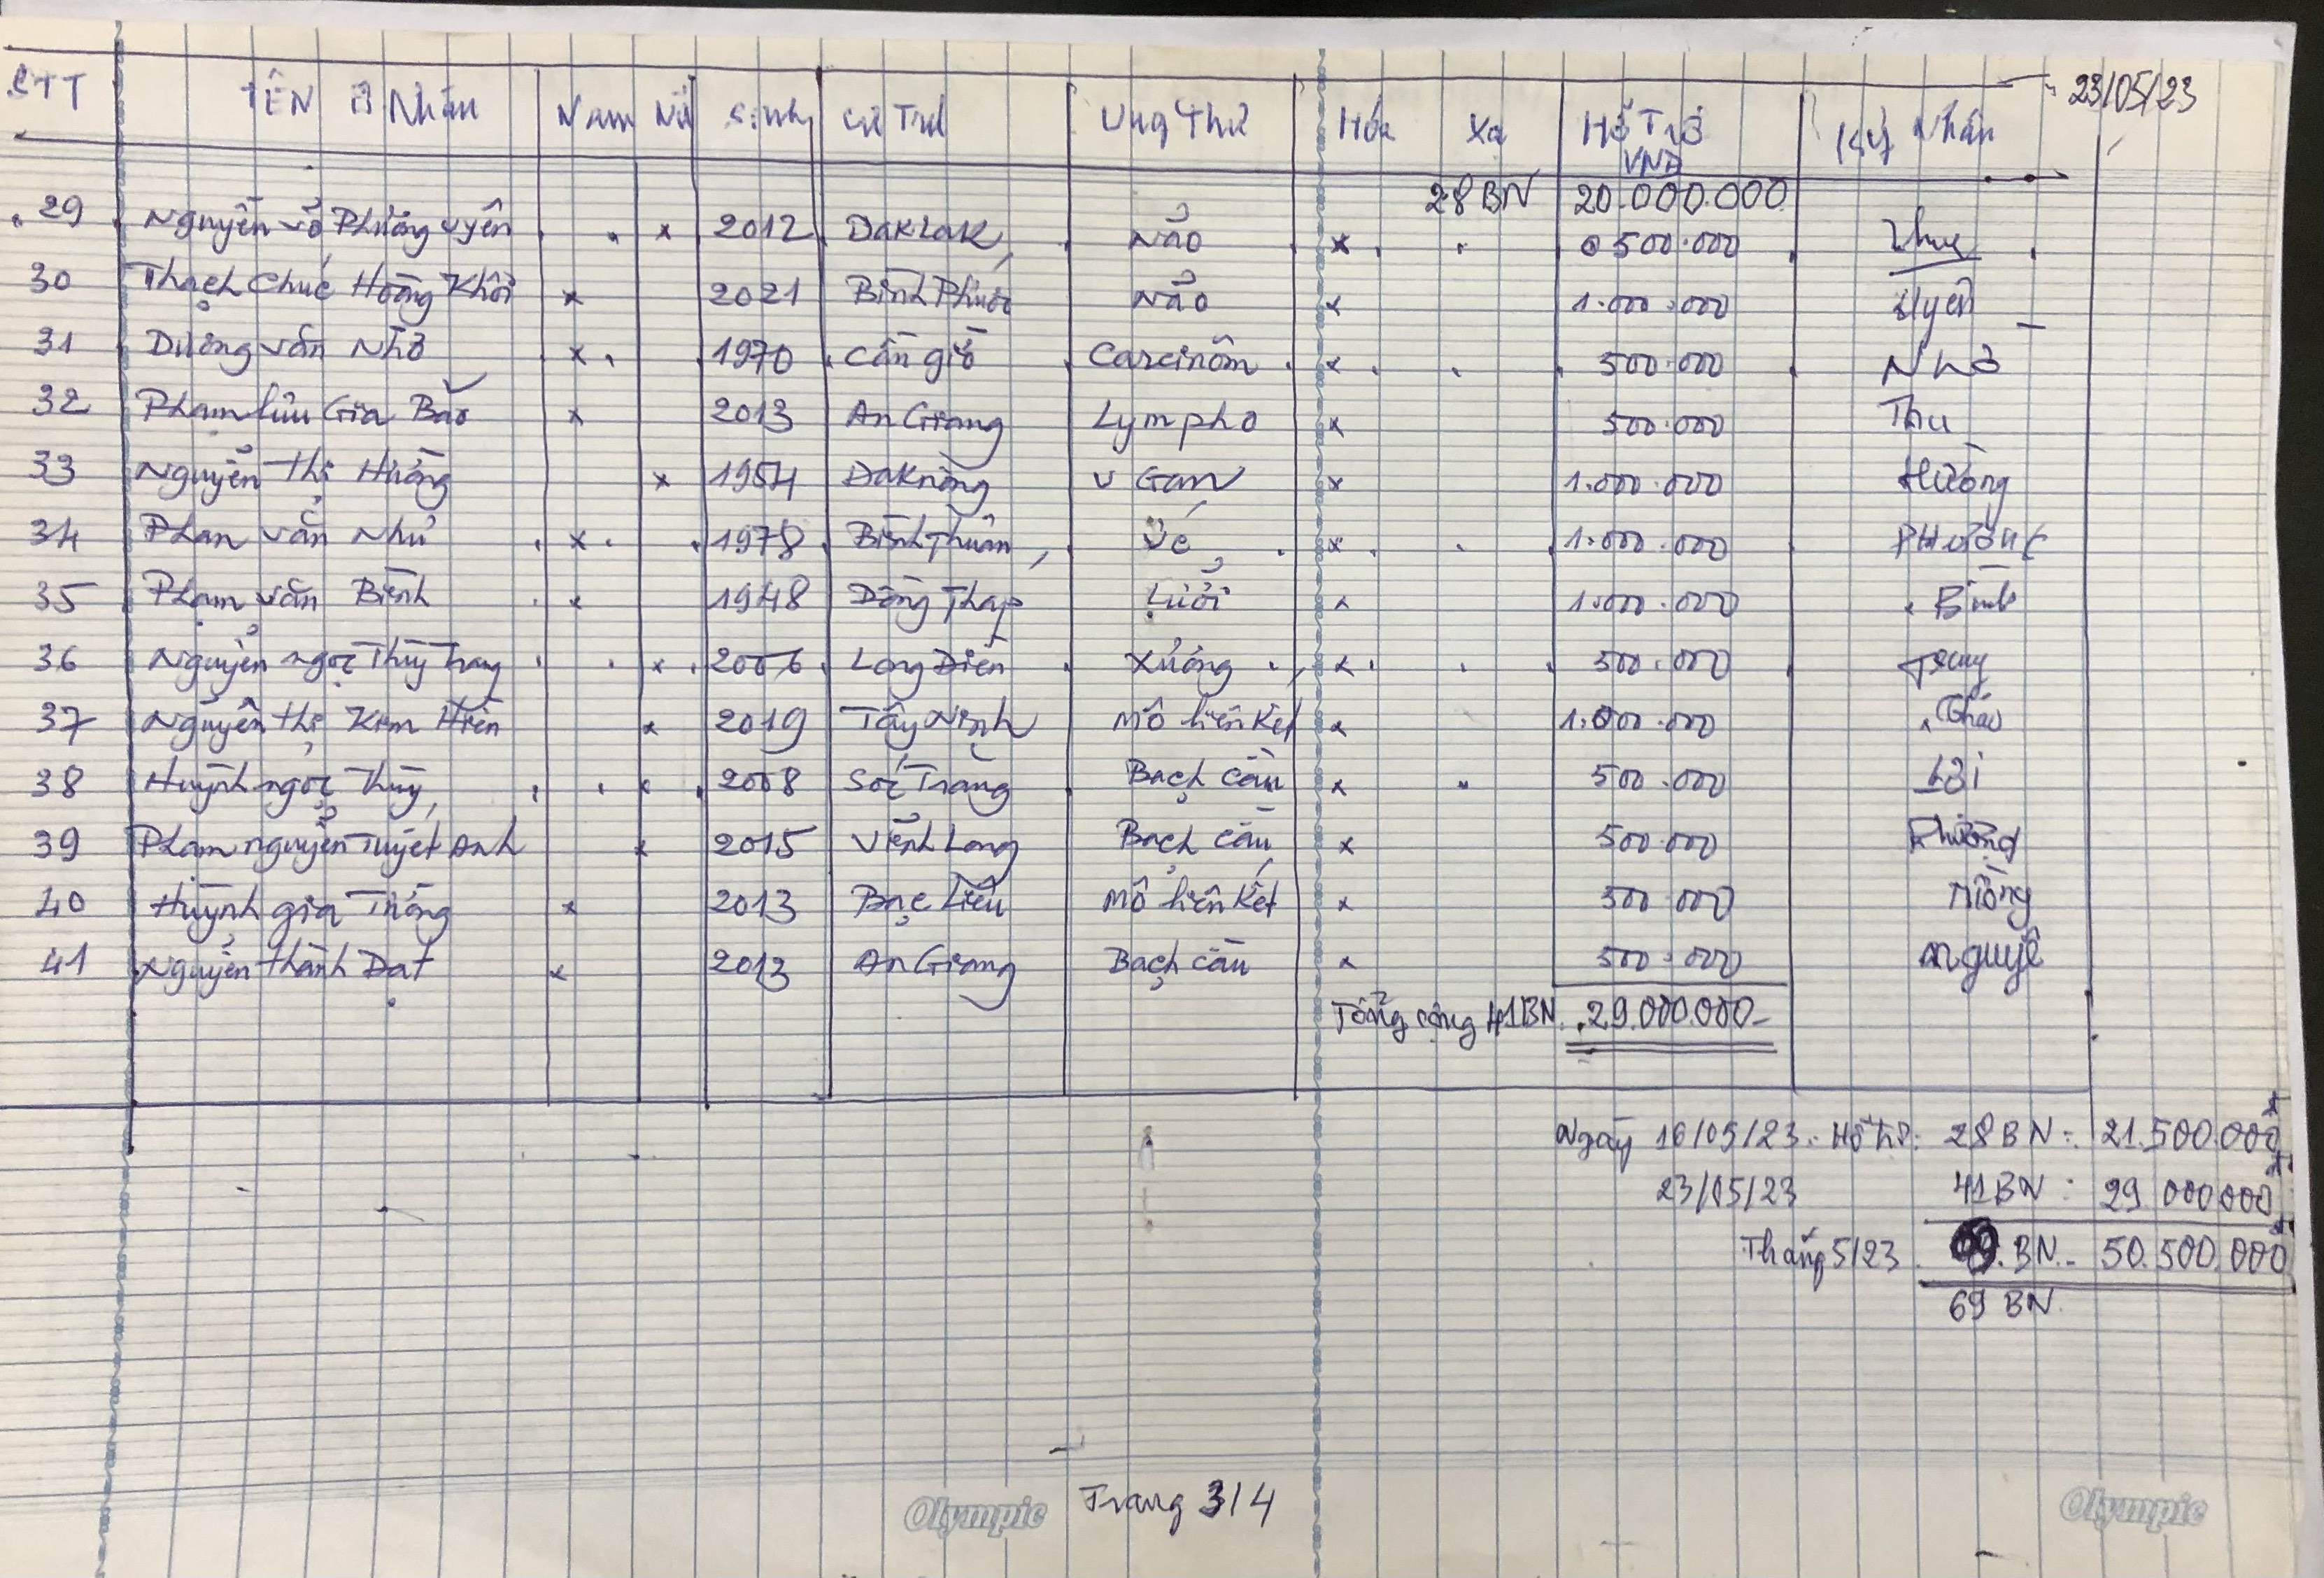 23/05/23
STT TÊN B Nhân Nam Nữ Sinh Cư Trú Ung Thư Hóa Xạ Hỗ Trợ VNĐ Ký Nhân
28 BN 20.000.000
29 Nguyễn Võ Phương Uyên x 2012 DakLak Não x 500.000
30 Thạch Chúc Hoàng Khôi x 2021 Bình Phước Não x 1.000.000 Uyên
31 Dương Văn Nhỏ x 1970 Cần giờ Carcinôm x 500.000 Nhỏ
32 Phạm Lưu Gia Bảo x 2013 An Giang Lympho x 500.000 Thu
33 Nguyễn Thị Hường x 1954 Daknông U Gan x 1.000.000 Hường
34 Phan Văn Như x 1978 Bình Thuận Vú x 1.000.000
35 Phạm Văn Bình x 1948 Đồng Tháp Lưỡi x 1.000.000 Bình
36 Nguyễn ngọc Thùy Trang x 2006 Long Điền Xương x 500.000 Trang
37 Nguyễn thị Kim Hiền x 2019 Tây Ninh Mô liên Kết x 1.000.000
38 Huỳnh ngọc Thùy x 2008 Sóc Trăng Bạch cầu x 500.000 Lợi
39 Phạm nguyễn Tuyết Anh x 2015 Vĩnh Long Bạch cầu x 500.000
40 Huỳnh gia Trọng x 2013 Bạc Liêu Mô liên Kết x 500.000
41 Nguyễn Thành Đạt x 2013 An Giang Bạch cầu x 500.000
Tổng cộng 41BN 29.000.000
Ngày 16/05/23 Hỗ trợ: 28 BN: 21.500.000đ
23/05/23 41BN: 29.000.000đ
Tháng 5/23 BN 50.500.000đ
69 BN.
Trang 3/4
Olympic
Olympic